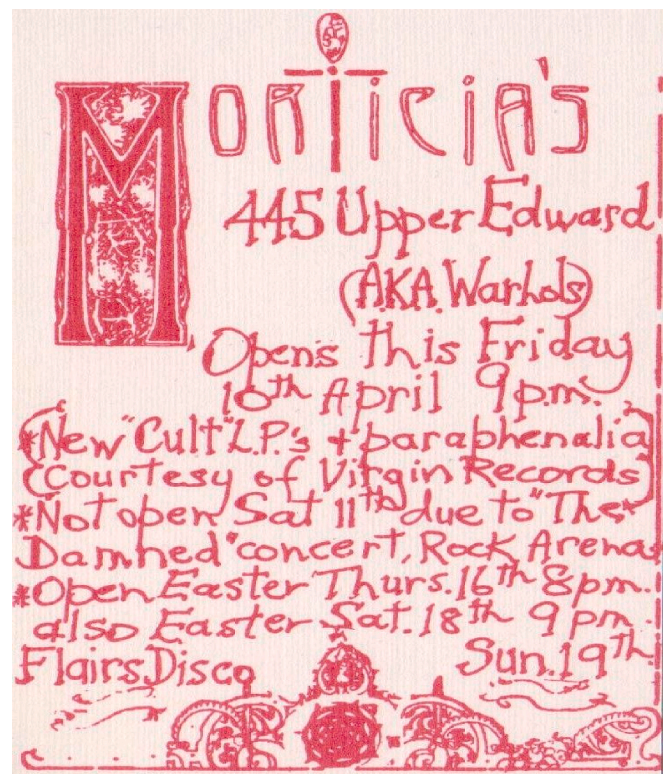 MORTICIA'S
445 Upper Edward
(A.K.A. Warhols)
Opens this Friday
10th April 9p.m.
*New "Cult" L.P.'s + paraphenalia
(Courtesy of Virgin Records)
*Not open Sat 11th due to "The
Damned" concert, Rock Arena
*Open Easter Thurs. 16th 8pm.
also Easter Sat. 18th 9pm
Flairs Disco Sun. 19th